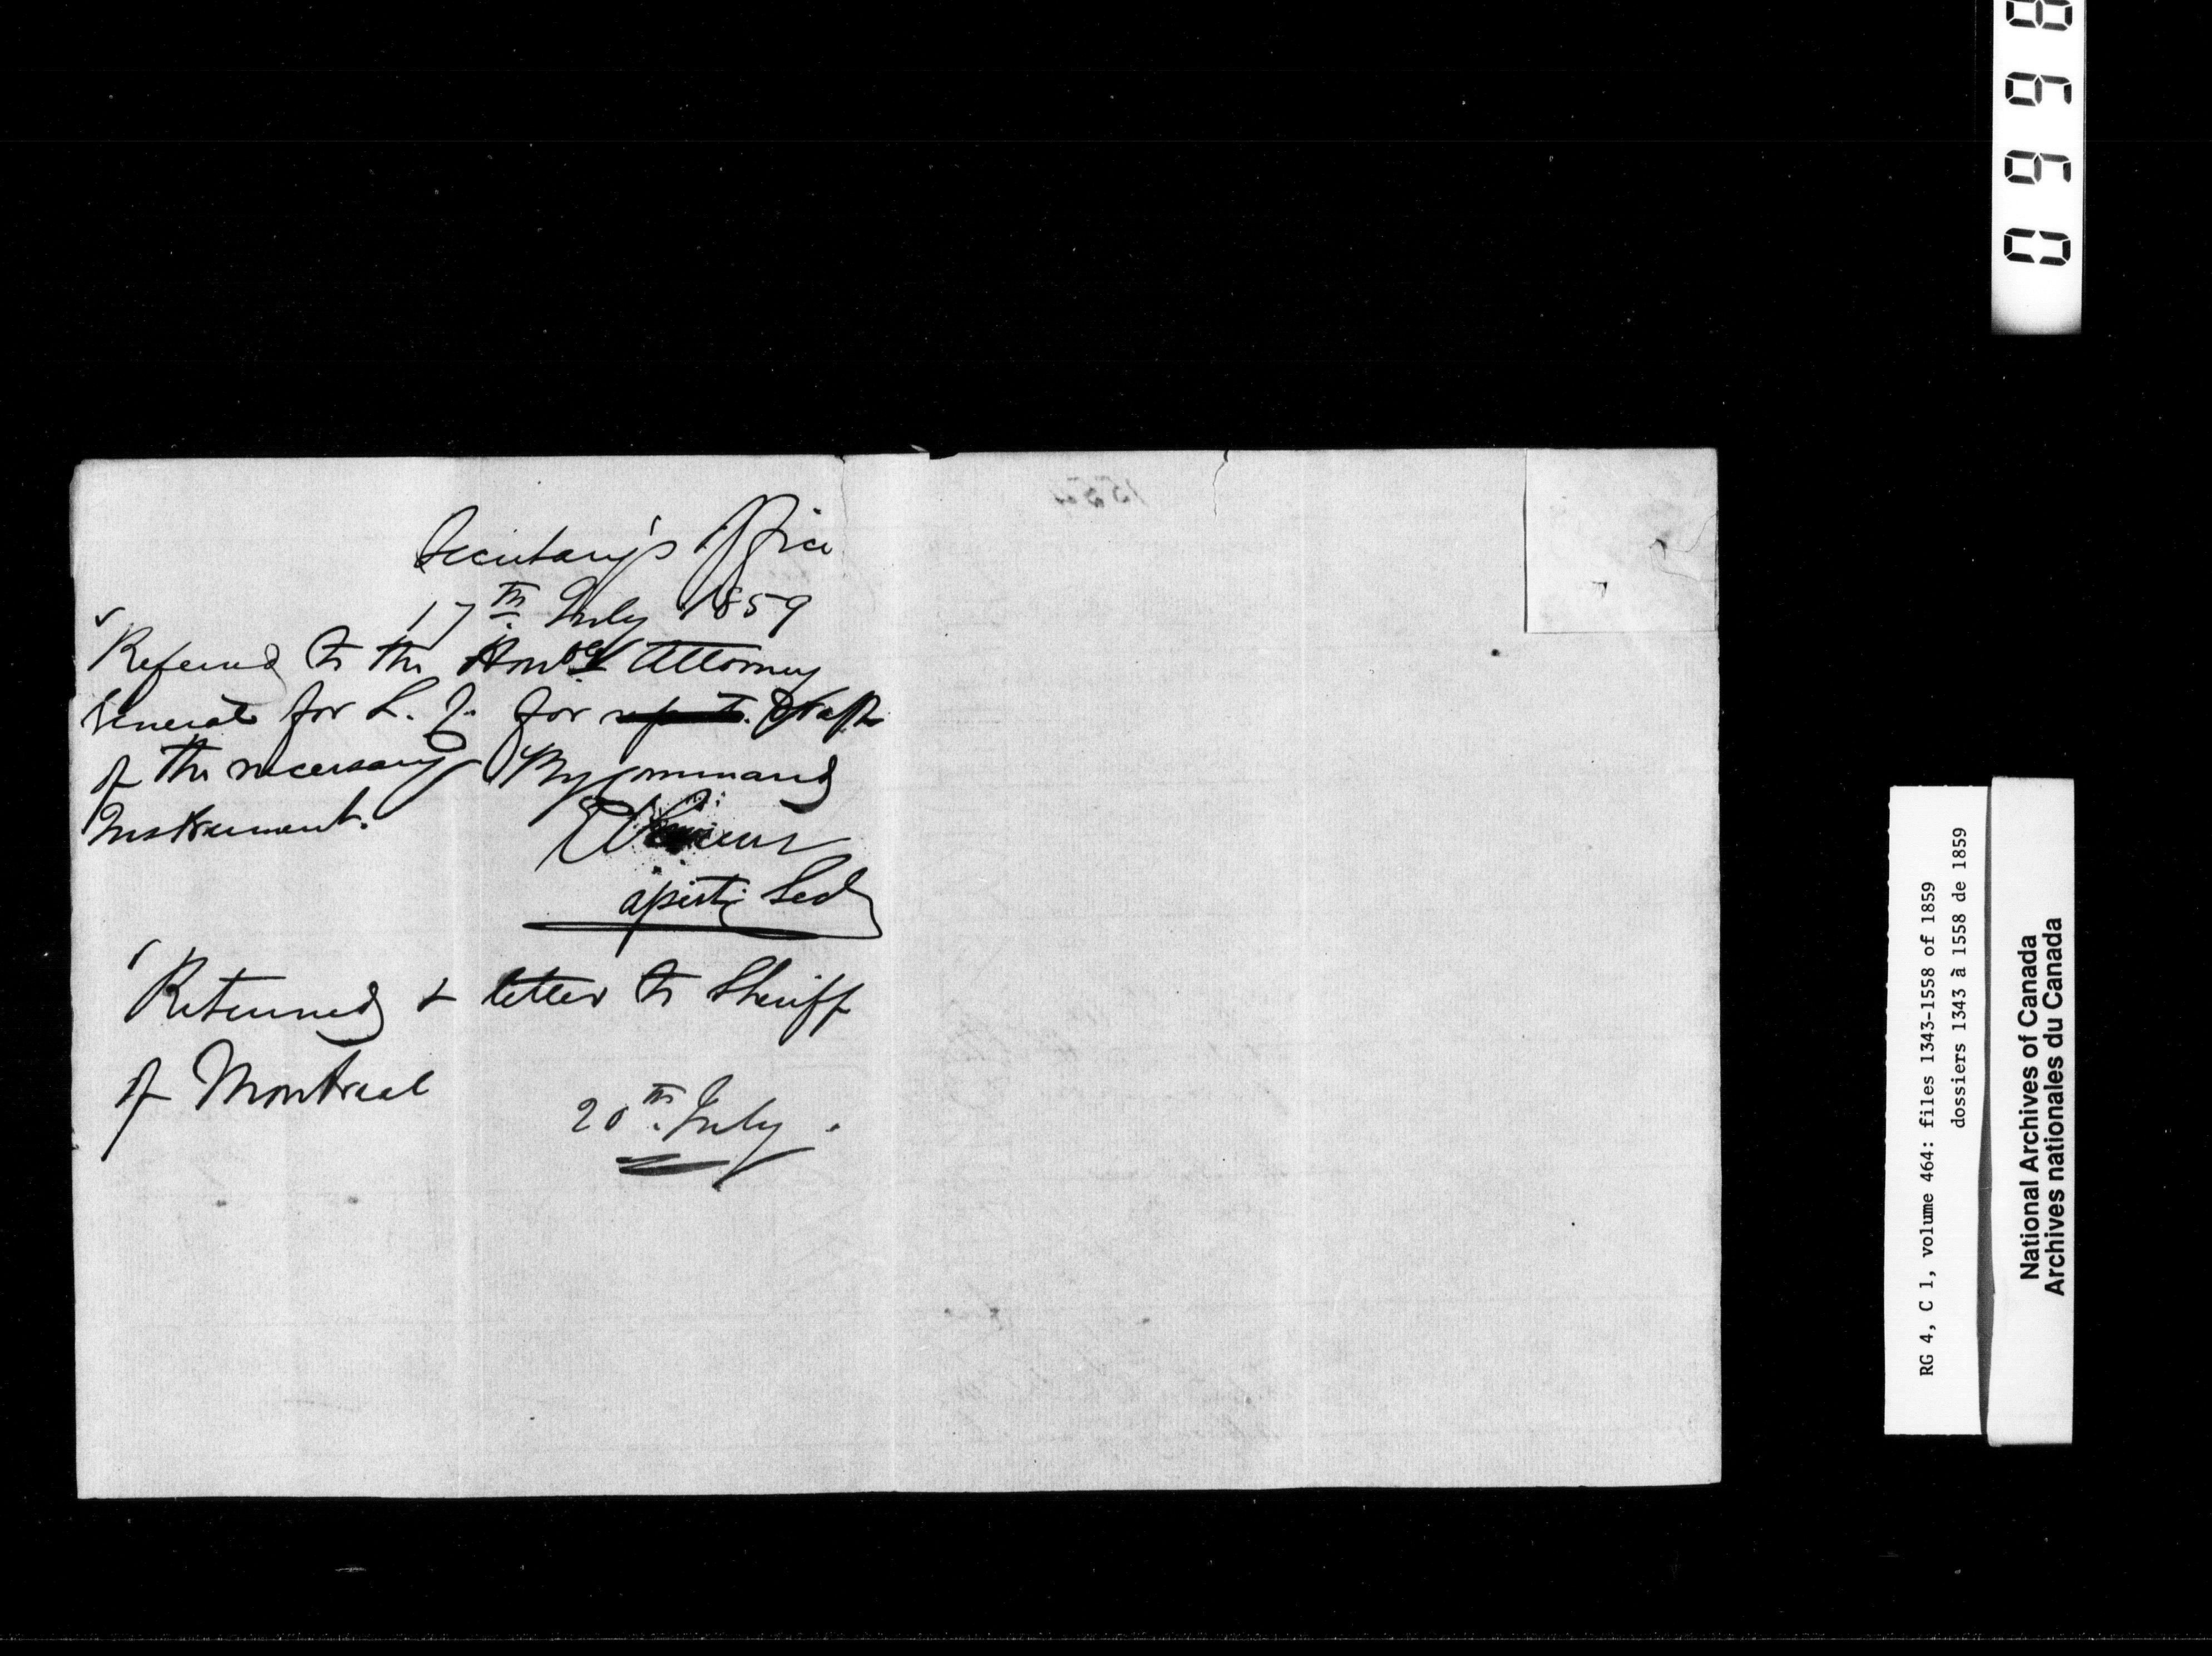 Secretary's Office
17th July 1859
Referred to the Honble Attorney
General for L. C. for report. Draft
of the necessary By command
Instrument.
E
assist. Sec
Returned & letter to Sheriff
of Montreal
20th July.
0668
RG 4, C 1, volume 464: files 1343-1558 of 1859
dossiers 1343 à 1558 de 1859
National Archives of Canada
Archives nationales du Canada